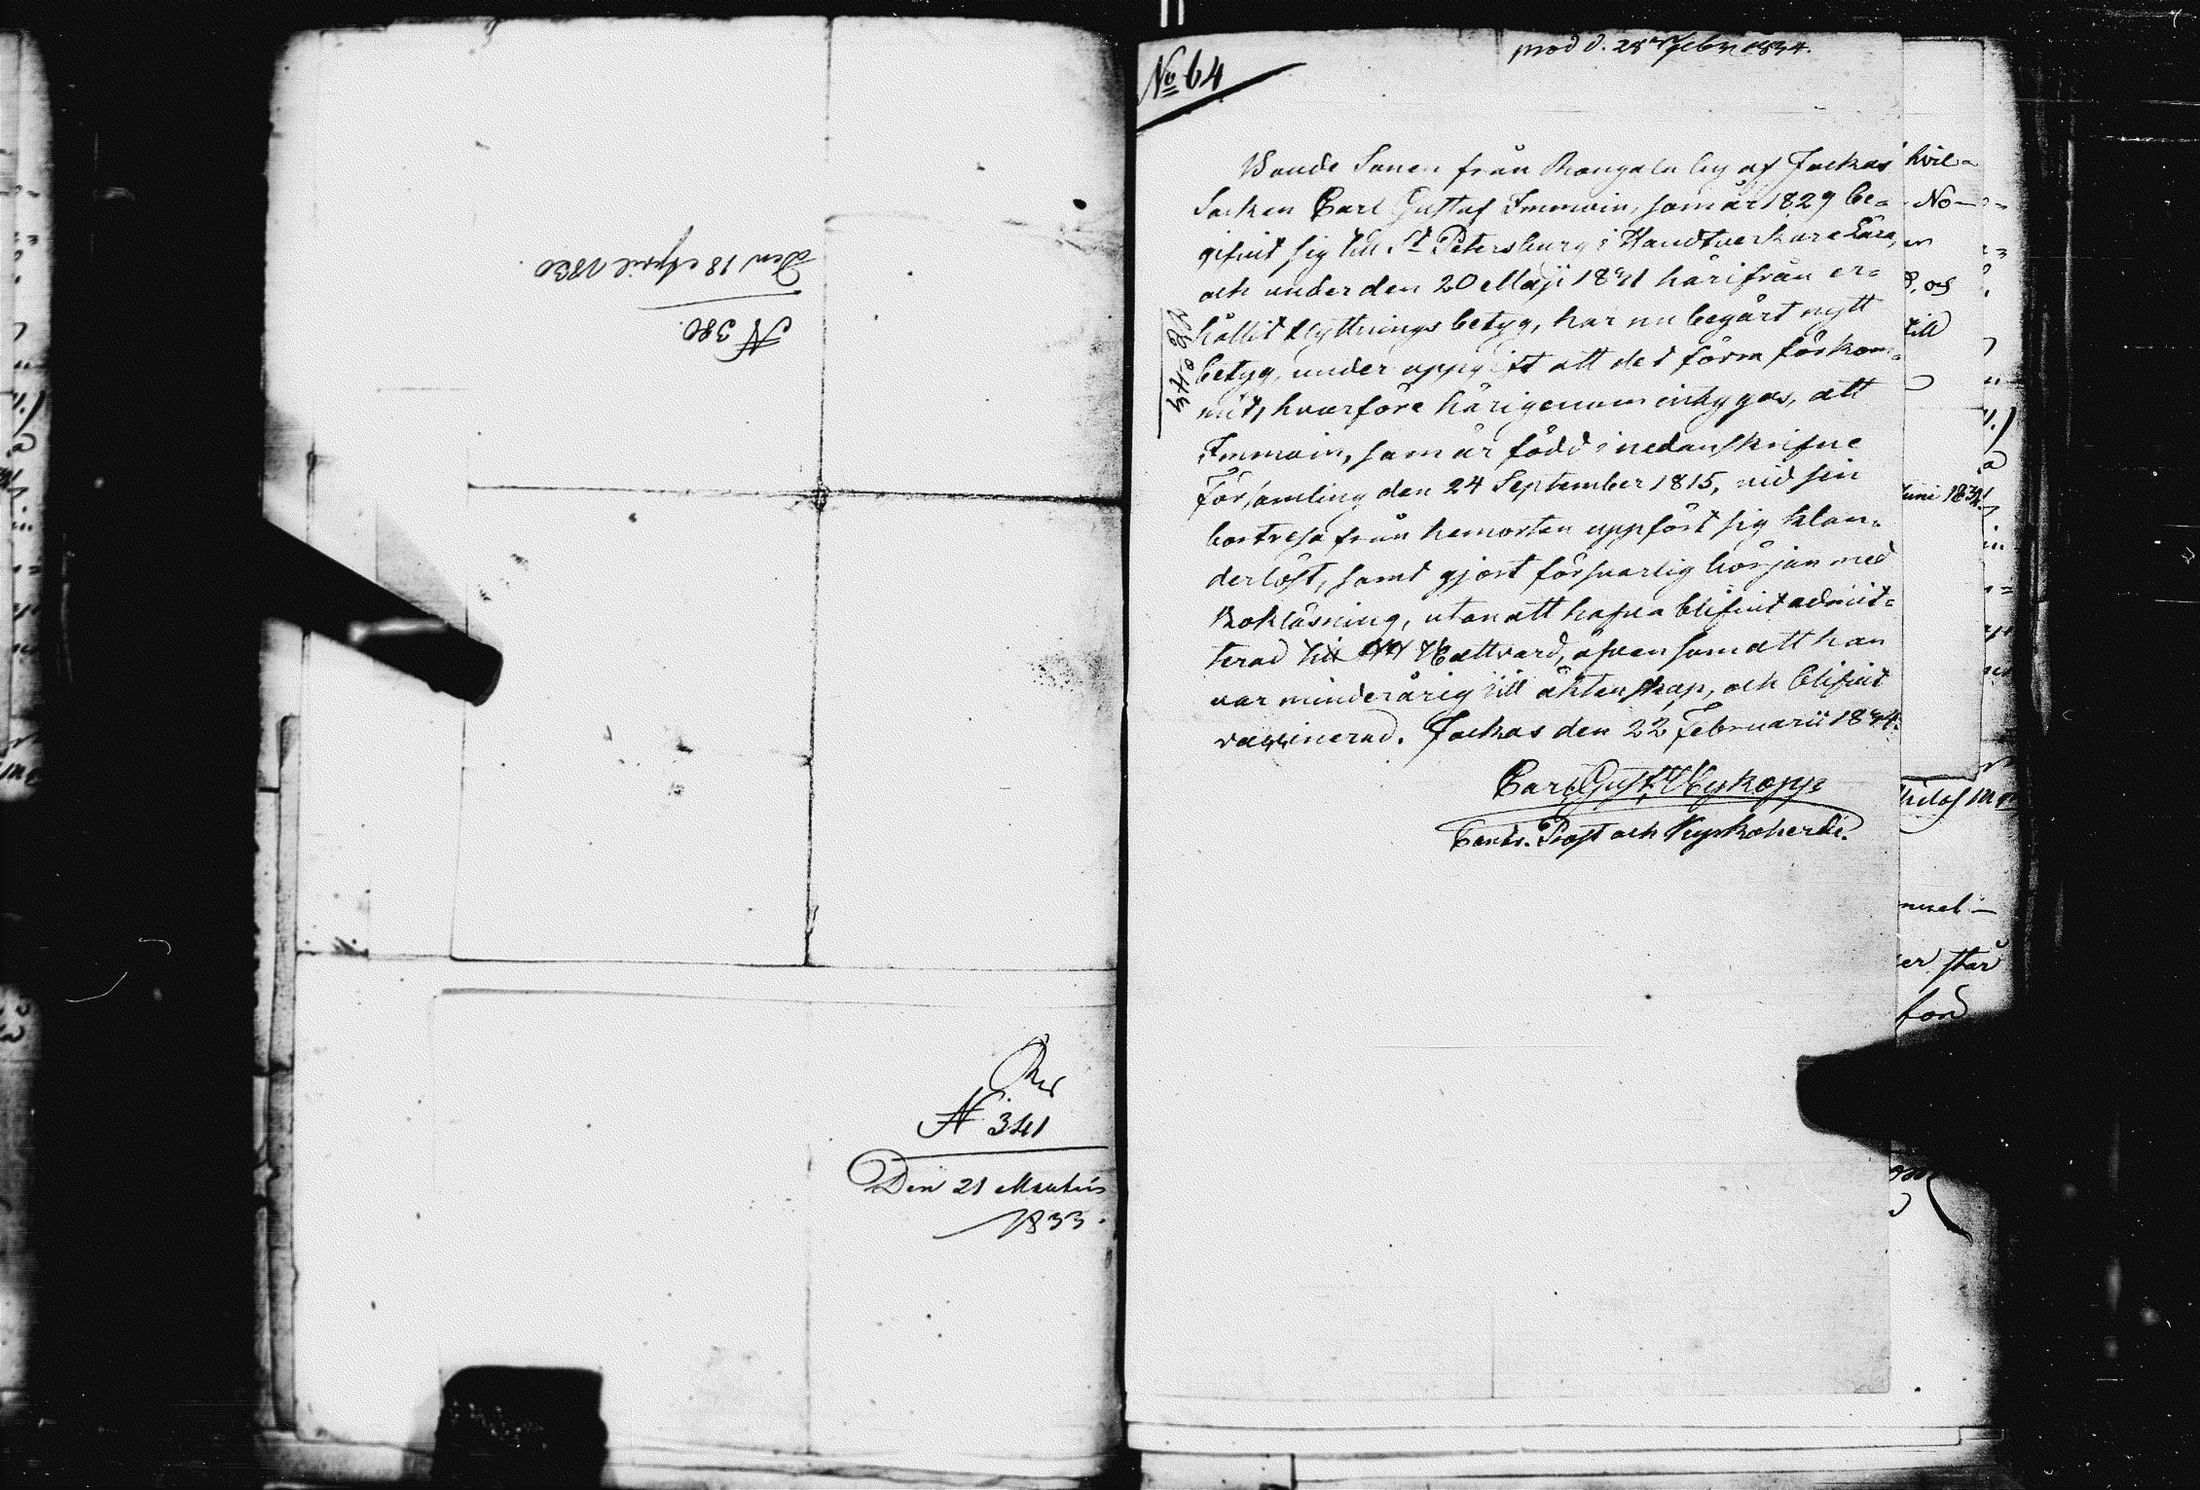 Den 18 April 1830
N 380.
N 341
Den 21 Martius
1833.
No 64
prod d. 28 Febr 1834.
Bonde Sonen från by af Jockas
Socken Carl Gustaf Immoin, som år 1829 be=
gifvit sig till St Petersburg i Handtverkare Lära,
och under den 20 Maji 1831 härifrån er=
hållit flyttnings betyg, har nu begärt nytt
betyg, under uppgift att det förra förkom=
mit, hvarföre härigenom intygas, att
Immoin, som är född i nedanskrifne
Församling den 24 September 1815, vid sin
bortresa från hemorten uppfört sig klan=
derlöst, samt gjort försvarlig början med
Bokläsning, utan att hafva blifvit admit=
terad till HH Nattvard, äfven som att han
var minderårig till äktenskap, och blifvit
vaccinerad. Jockas den 22 Februarii 1834.
Carl Gust. Nykopp
Contr. Prost och Kyrkoherde.
hvil=
No=
och
till
Juni 1834
er står